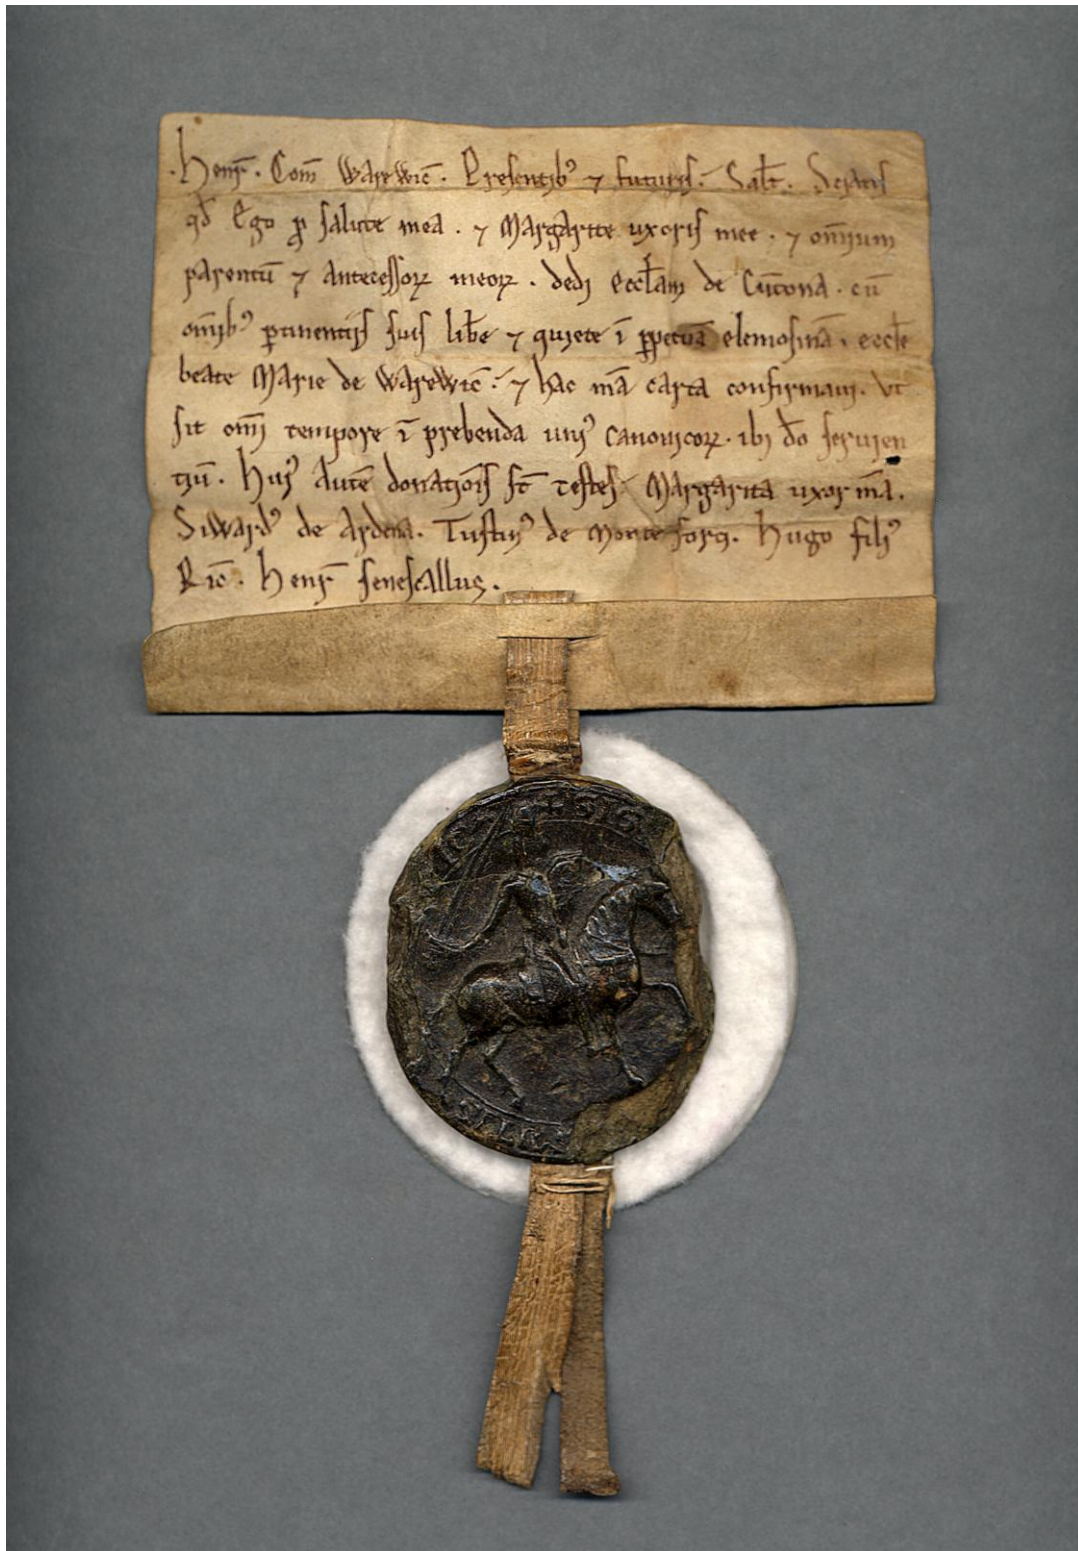 .Henr̄. Com̄ Warewic̄. Presentibꝰ ⁊ futuris. Sal̄t. Sciatis
qđ Ego ꝓ salute mea. ⁊ Margarite uxoris mee. ⁊ om̄ium
parentū ⁊ Antecessoꝝ meoꝝ. dedi Eccłam de Cūtona. cū
om̄ibꝰ ꝑtinentiis suis lib̄e ⁊ quiete ī ꝑpetuā elemosinā. eccłe
beate Marie de Warewic̄. ⁊ hac m̄a carta confirmaui. Vt
sit omī tempore ī prebenda uniꝰ canonicoꝝ. ibi đo seruien
tiū. Huiꝰ Autē donatiōis st̄ testes. Margarita uxor m̄a.
Siwardꝰ de Ardena. Tustinꝰ de Monte forti. Hugo filiꝰ
Ric̄. Henr̄ senescallus.
+ SIG